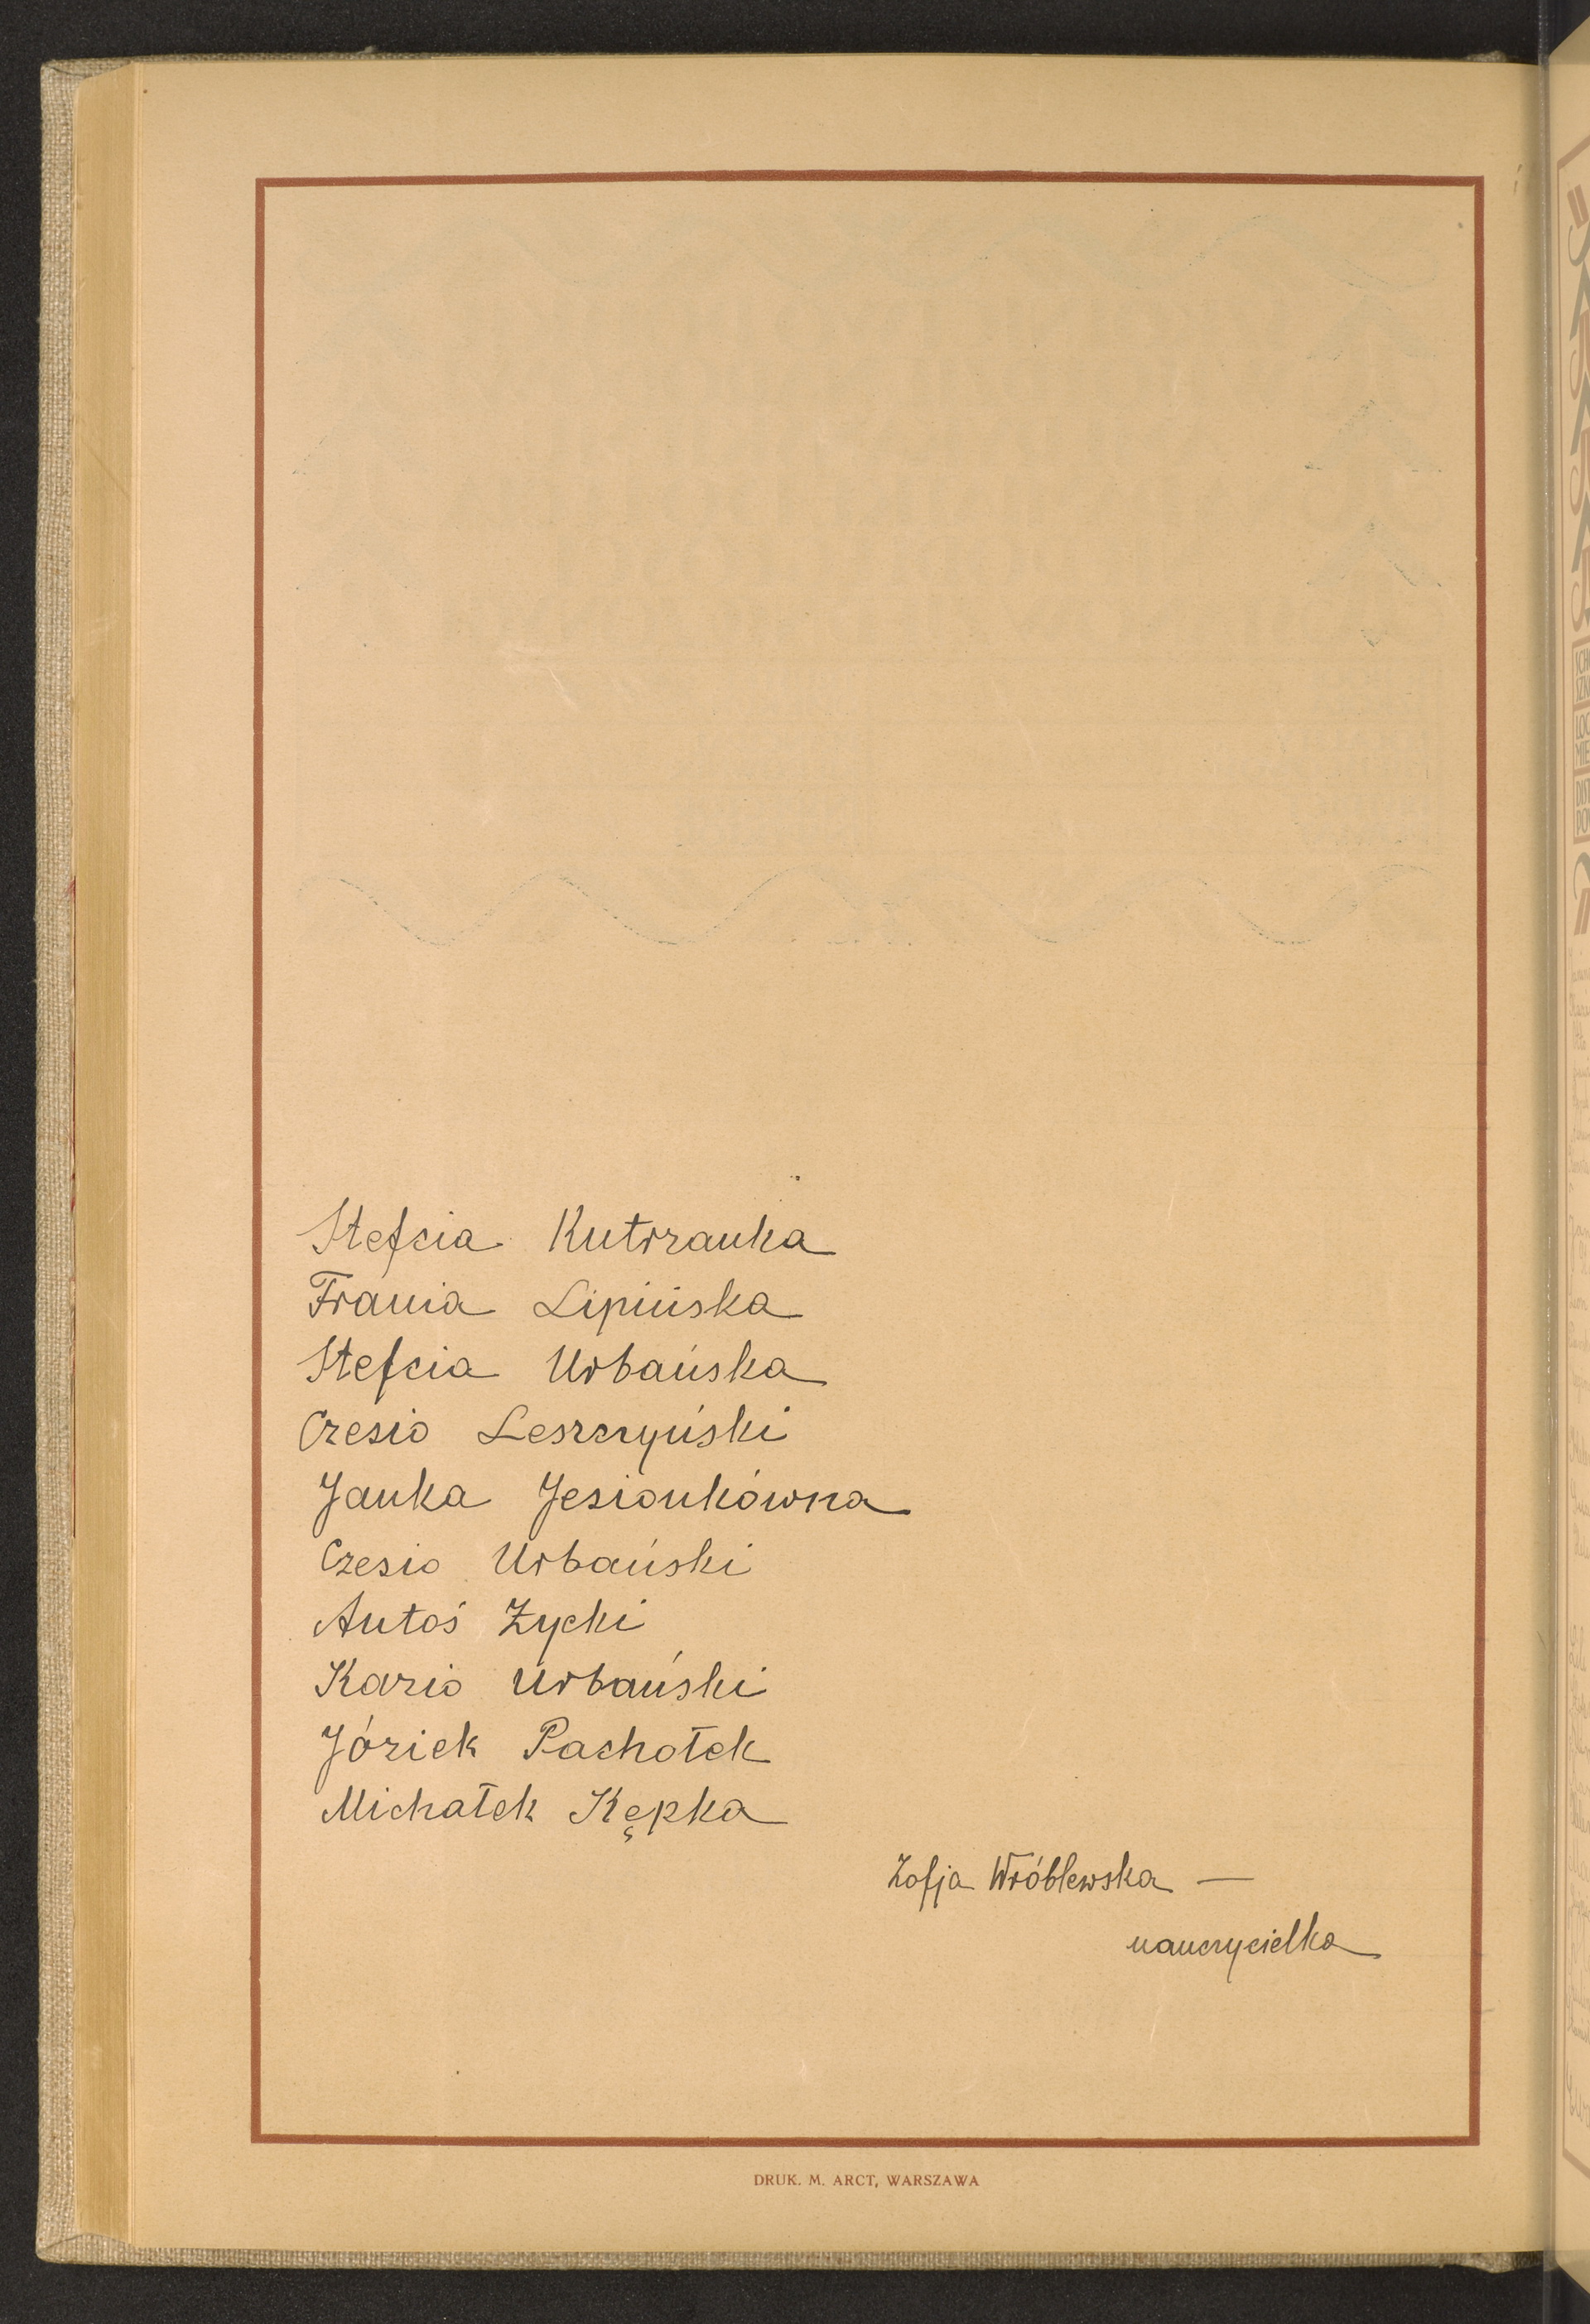 Stefcia Kutrzanka
Frania Lipińska
Stefcia Urbańska
Czesio Leszczyński
Janka Jesionkówna
Czesio Urbański
Antoś Życki
Kazio Urbański
Józiek Pachołek
Michałek Kępka
Zofja Wróblewska —
nauczycielka
DRUK. M. ARCT, WARSZAWA